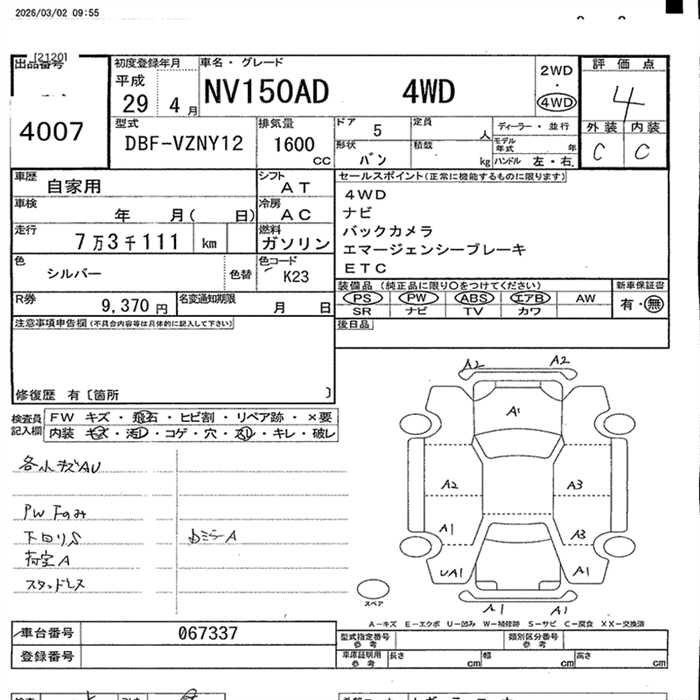 2026/03/02 09:55
[2120]
出品番号
4007
初度登録年月
平成
29 4 月
車名・グレード
NV150AD 4WD
2WD
・
4WD
評価点
4
外装 内装
C C
型式
DBF-VZNY12
排気量
1600
CC
ドア
5
定員
人
形状
バン
積載
kg
ディーラー・並行
モデル
年式 年
ハンドル 左・右
車歴
自家用
シフト
AT
車検
年 月( 日)
冷房
AC
走行
7万3千111 km
燃料
ガソリン
色
シルバー
色替
色コード
K23
R券
9,370 円
名変通知期限
月 日
セールスポイント(正常に機能するものに限ります)
4WD
ナビ
バックカメラ
エマージェンシーブレーキ
ETC
装備品 (純正品に限り○をつけてください)
PS PW ABS エアB AW
SR ナビ TV カワ
新車保証書
有・無
後日品
注意事項申告欄(不具合内容等は具体的に記入して下さい)
修復歴 有〔箇所 〕
検査員
記入欄
FW キズ・飛石・ヒビ割・リペア跡・×要
内装 キズ・汚レ・コゲ・穴・スレ・キレ・破レ
各小キズAU
PW Fのみ
下回りS
荷室A
スタッドレス
A2 A2
A1
A2 A3
A1 A3
UA1 A1
A1 A1
スペア
A−キズ E−エクボ U−凹み W−補修跡 S−サビ C−腐食 XX−交換済
車台番号
067337
登録番号
型式指定番号
参考
類別区分番号
参考
車庫証明用
参考
長さ cm 幅 cm 高さ cm